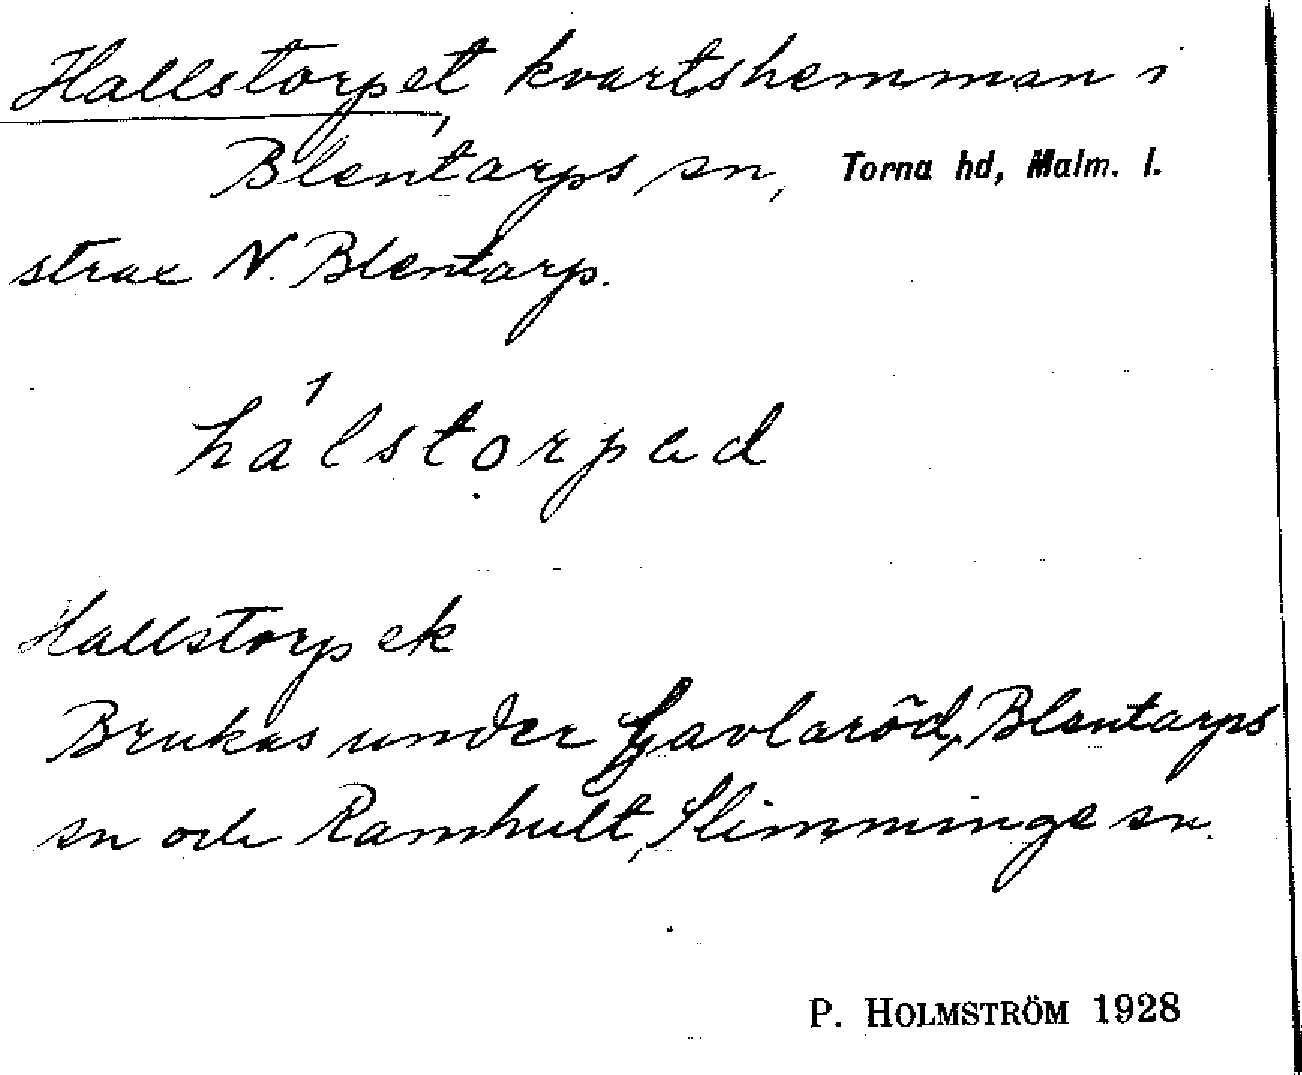 Hallstorpet, kvartshemman i
Blentarps sn, Torna hd, Malm. l.
strax N. Blentarp.
hálstorpad
Hallstorp ek
Brukas under Gavlaröd, Blentarps
sn och Ramhult, Slimminge sn.
P. HOLMSTRÖM 1928